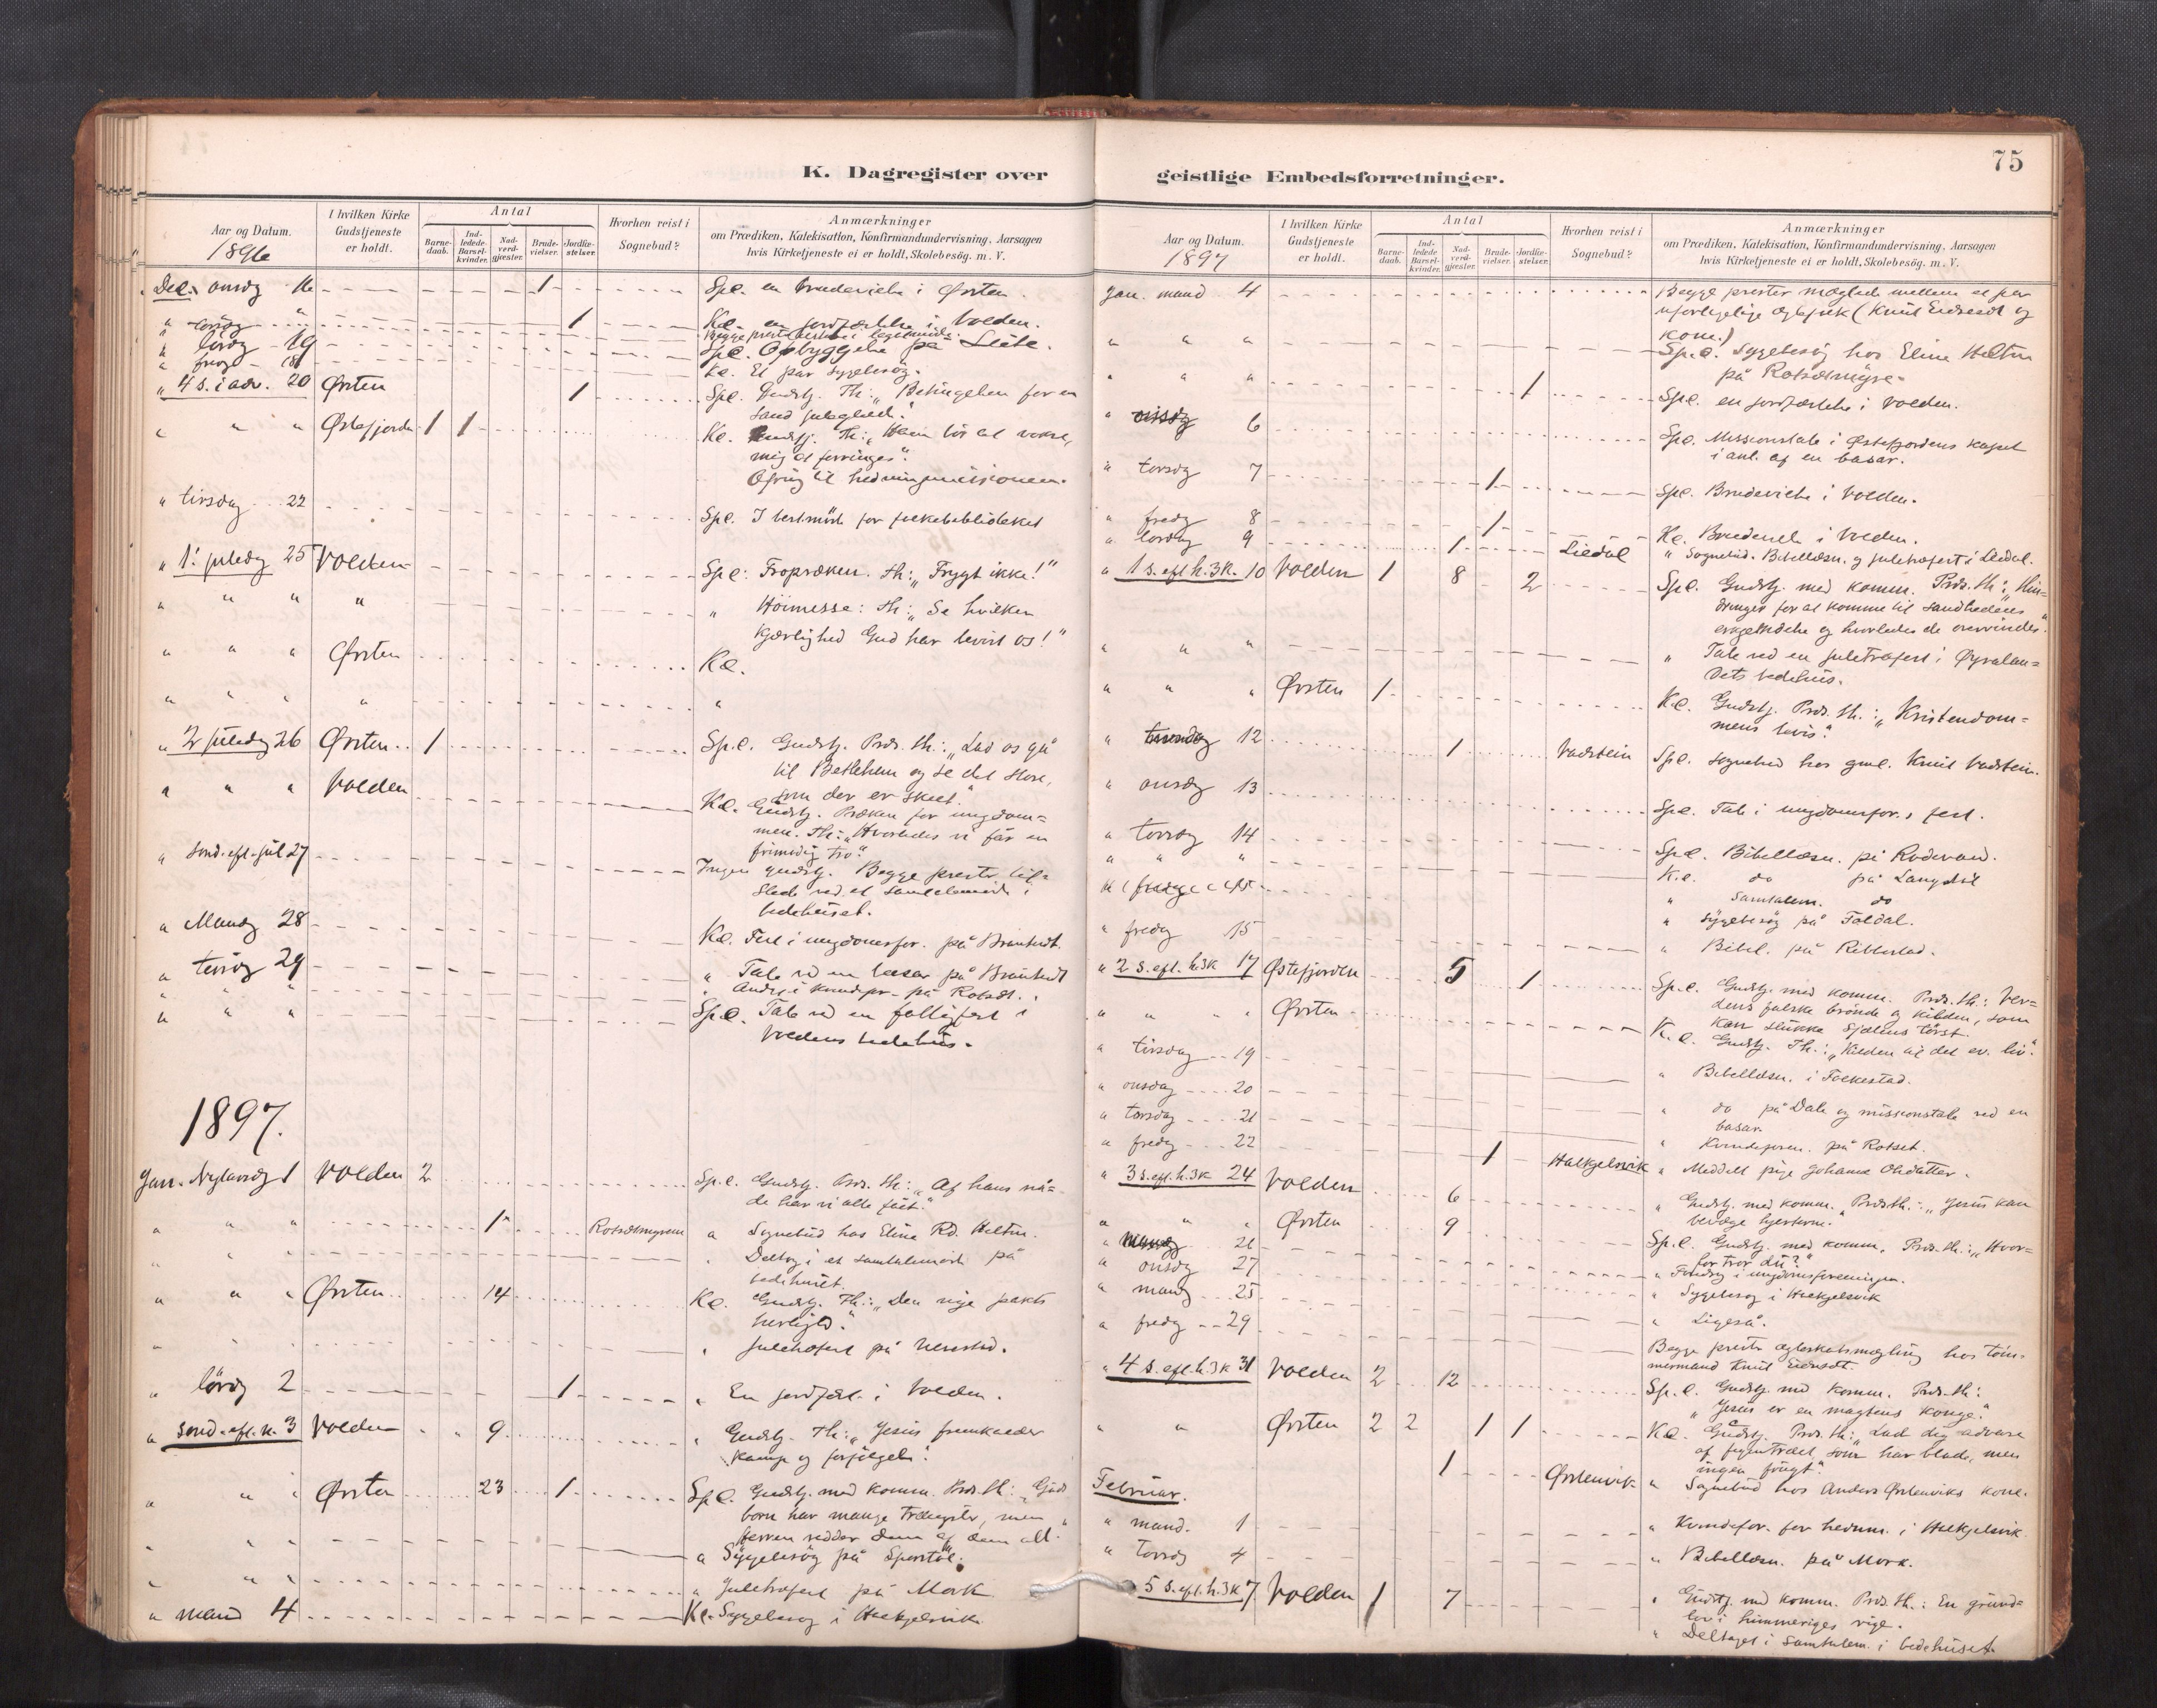 K. Dagregister over
Aar og Datum.
1896
I hvilken Kirke
Gudstjeneste
er holdt.
Antal
Barne-
daab.
Ind-
ledede
Barsel-
kvinder.
Nad-
verd-
gjæster.
Brude-
vielser.
Jordfæ-
stelser.
Hvorhen reist i
Sognebud?
Anmærkninger
om Prædiken, Katekisation, Konfirmandundervisning, Aarsagen
hvis Kirketjeneste ei er holdt, Skolebesög. m. V.
Dec. onsdg 16 1 Spl. en brudevielse i Örsten.
" " 1 Kl. en jordfæstelse i Volden.
" lördg 19 Spl. Opbyggelse på
" fredg 18 Kl. Et par sygebesög.
" 4 s. i adv. 20 Örsten 1 Spl. Gudstj. Th: "Betingelsen for en
sand juleglæde."
" " " Östefjorden 1 1 Kl. Gudstj. Th: "Ham bör at vokse,
mig at forringes".
Ofring til hedningemissionen.
" tirsdag 22 Spl. I bestmöde for folkebiblioteket
" 1. juledg 25 Volden Spl: Fropræken. Th: "Frygt ikke!"
" " " " " Höimesse: th: "Se hvilken
kjærlighed Gud har bevist os!"
" " " Örsten Kl.
" " " " "
" 2 juledg 26 Örsten 1 Spl. Gudstj. Præd. th: "Lad os gå
til Betlehem og se det store,
som der er skeet."
" " " Volden Kl. Gudstj. Præken for ungdom=
men. Th: "Hvorledes vi får en
frimodig tro."
" sönd. eft. jul 27 Ingen gudstj. Begge prester til=
stede ved et samtalemöde i
bedehuset.
" Mandg 28 Kl. Fest i ungdomsfor. på
" tirsdg 29 " Tale ved en basar på
" " "
" " " Spl. Tale ved en fattigfest i
Voldens bedehus.
1897.
Jan. Nytårsdg 1 Volden 2 Spl. Gudstj. Præd. th: "Af hans nå=
de har vi alle fået."
" " " 1 Rotsetmyren " Sognebud hos Eline Rd.
" " " Deltog i et samtalemöde på
bedehuset.
" " " Örsten 14 Kl. Gudstj. Th: "Den nye pakts
herlighed".
" Juletræfest på
" lördg 2 1 " En jordfæst. i Volden.
" sönd. eft. n. 3 Volden 9 " Gudstj. Th: "Jesus fremkalder
kamp og forfölgelse".
" " " Örsten 23 1 Spl. Gudstj. med komm. Præd. th: "Guds
börn har mange trængsler, men
herren redder dem af dem alle."
" " " " Sygebesög på
" " " " Juletræfest på Mork
" mand 4 Kl. Sygebesög i Halkjelsvik
geistlige Embedsforretninger.
75
Aar og Datum.
1897
I hvilken Kirke
Gudstjeneste
er holdt.
Antal
Barne-
daab.
Ind-
ledede
Barsel-
kvinder.
Nad-
verd-
gjæster.
Brude-
vielser.
Jordfæ-
stelser.
Hvorhen reist i
Sognebud?
Anmærkninger
om Prædiken, Katekisation, Konfirmandundervisning, Aarsagen
hvis Kirketjeneste ei er holdt, Skolebesög. m. V.
Jan. mand 4 Begge prester mæglede mellem et par
uforligelige ægtefolk (Knut og
kone.)
" " " Spl. Sygebesög hos Eline
på Rotsetmyre-
" " " 1 Spl. en jordfæstelse i Volden.
" 6 Spl. Missionstale i Östefjordens kapel
i anl. af en basar.
" torsdg 7 1 Spl. Brudevielse i Volden.
" fredg 8 1 Kl. Brudeviels. i Volden.
" lördg 9 1 Liedal " Sognebud. Bibellæsn. og juletræfest i Liedal.
" 1 s. eft. h. 3 k. 10 Volden 1 8 2 Spl. Gudstj. med komm. Præd. th: "Hin=
dringer for at komme til sandhedens
erkjendelse og hvorledes de overvindes".
" " " " Tale ved en juletræfest i Öyralan=
dets bedehus.
" " " Örsten 1 Kl. Gudstj. Præd. th.: "Kristendom=
mens bevis".
" 12 1 Vadstein Spl. Sognebud hos gml. Knut Vadstein.
" onsdg 13 Spl. Tale i ungdomsfor.s fest.
" torsdg 14 Spl. Bibellæsn. på Rödevand.
" " " Kl. do på Langdal
" Samtalem. do
" sygebesög på Foldal.
" fredg 15 " Bibel. på
" 2 s. eft. h. 3k 17 Östefjorden 5 1 Spl. Gudstj. med komm. Præd. th.: Ver=
dens falske brönde og kilden, som
kan slukke sjælens törst.
" " " Örsten Kl. Gudstj. Th.: "Kilden til det ev. liv".
" tirsdag 19 " Bibellæsn. i Folkestad.
" onsdag 20 " do på Dale og missionstale ved en
basar.
" torsdag 21 " Kvindeforen. på Rotset.
" fredg 22 1 Halkjelsvik " Meddelt pige Johanne Olsdatter.
" 3 s. eft. h. 3k 24 Volden 6 " Gudstj. med komm. Præd. th.: "Jesus kan
bevæge hjerterne."
" " " Örsten 9 Spl. Gudstj. med komm. Præd. th.: "Hvor=
for tror du?"
" 26 " Foredrag i ungdomsforeningen.
" onsdg 27 " Sygebesög i Halkjelsvik
" mandg 25 " Ligeså.
" fredg 29 Begge prester ægteskabsmægling hos töm=
mermand Knut
" 4 s. eft. h. 3k 31 Volden 2 12 Spl. Gudstj. med komm. Præd. th:
"Jesus er en magtens konge."
" " Örsten 2 2 1 1 Kl. Gudstj. Præd. th: "Lad dig advare
af figentræet som har blade, men
ingen frugt".
1 Örstenvik " Sognebud hos Anders Örstenviks kone.
Februar.
" mand. 1 " Kvindefor. for hednm. i Halkjelsvik.
" torsdg 4 " Bibellæsn. på Mork.
5 s. eft. h. 3k 7 Volden 1 7 " Gudstj. med komm. Præd. th.: En grund=
lov i himmeriges rige.
" Deltaget i samtalem. i bedehuset